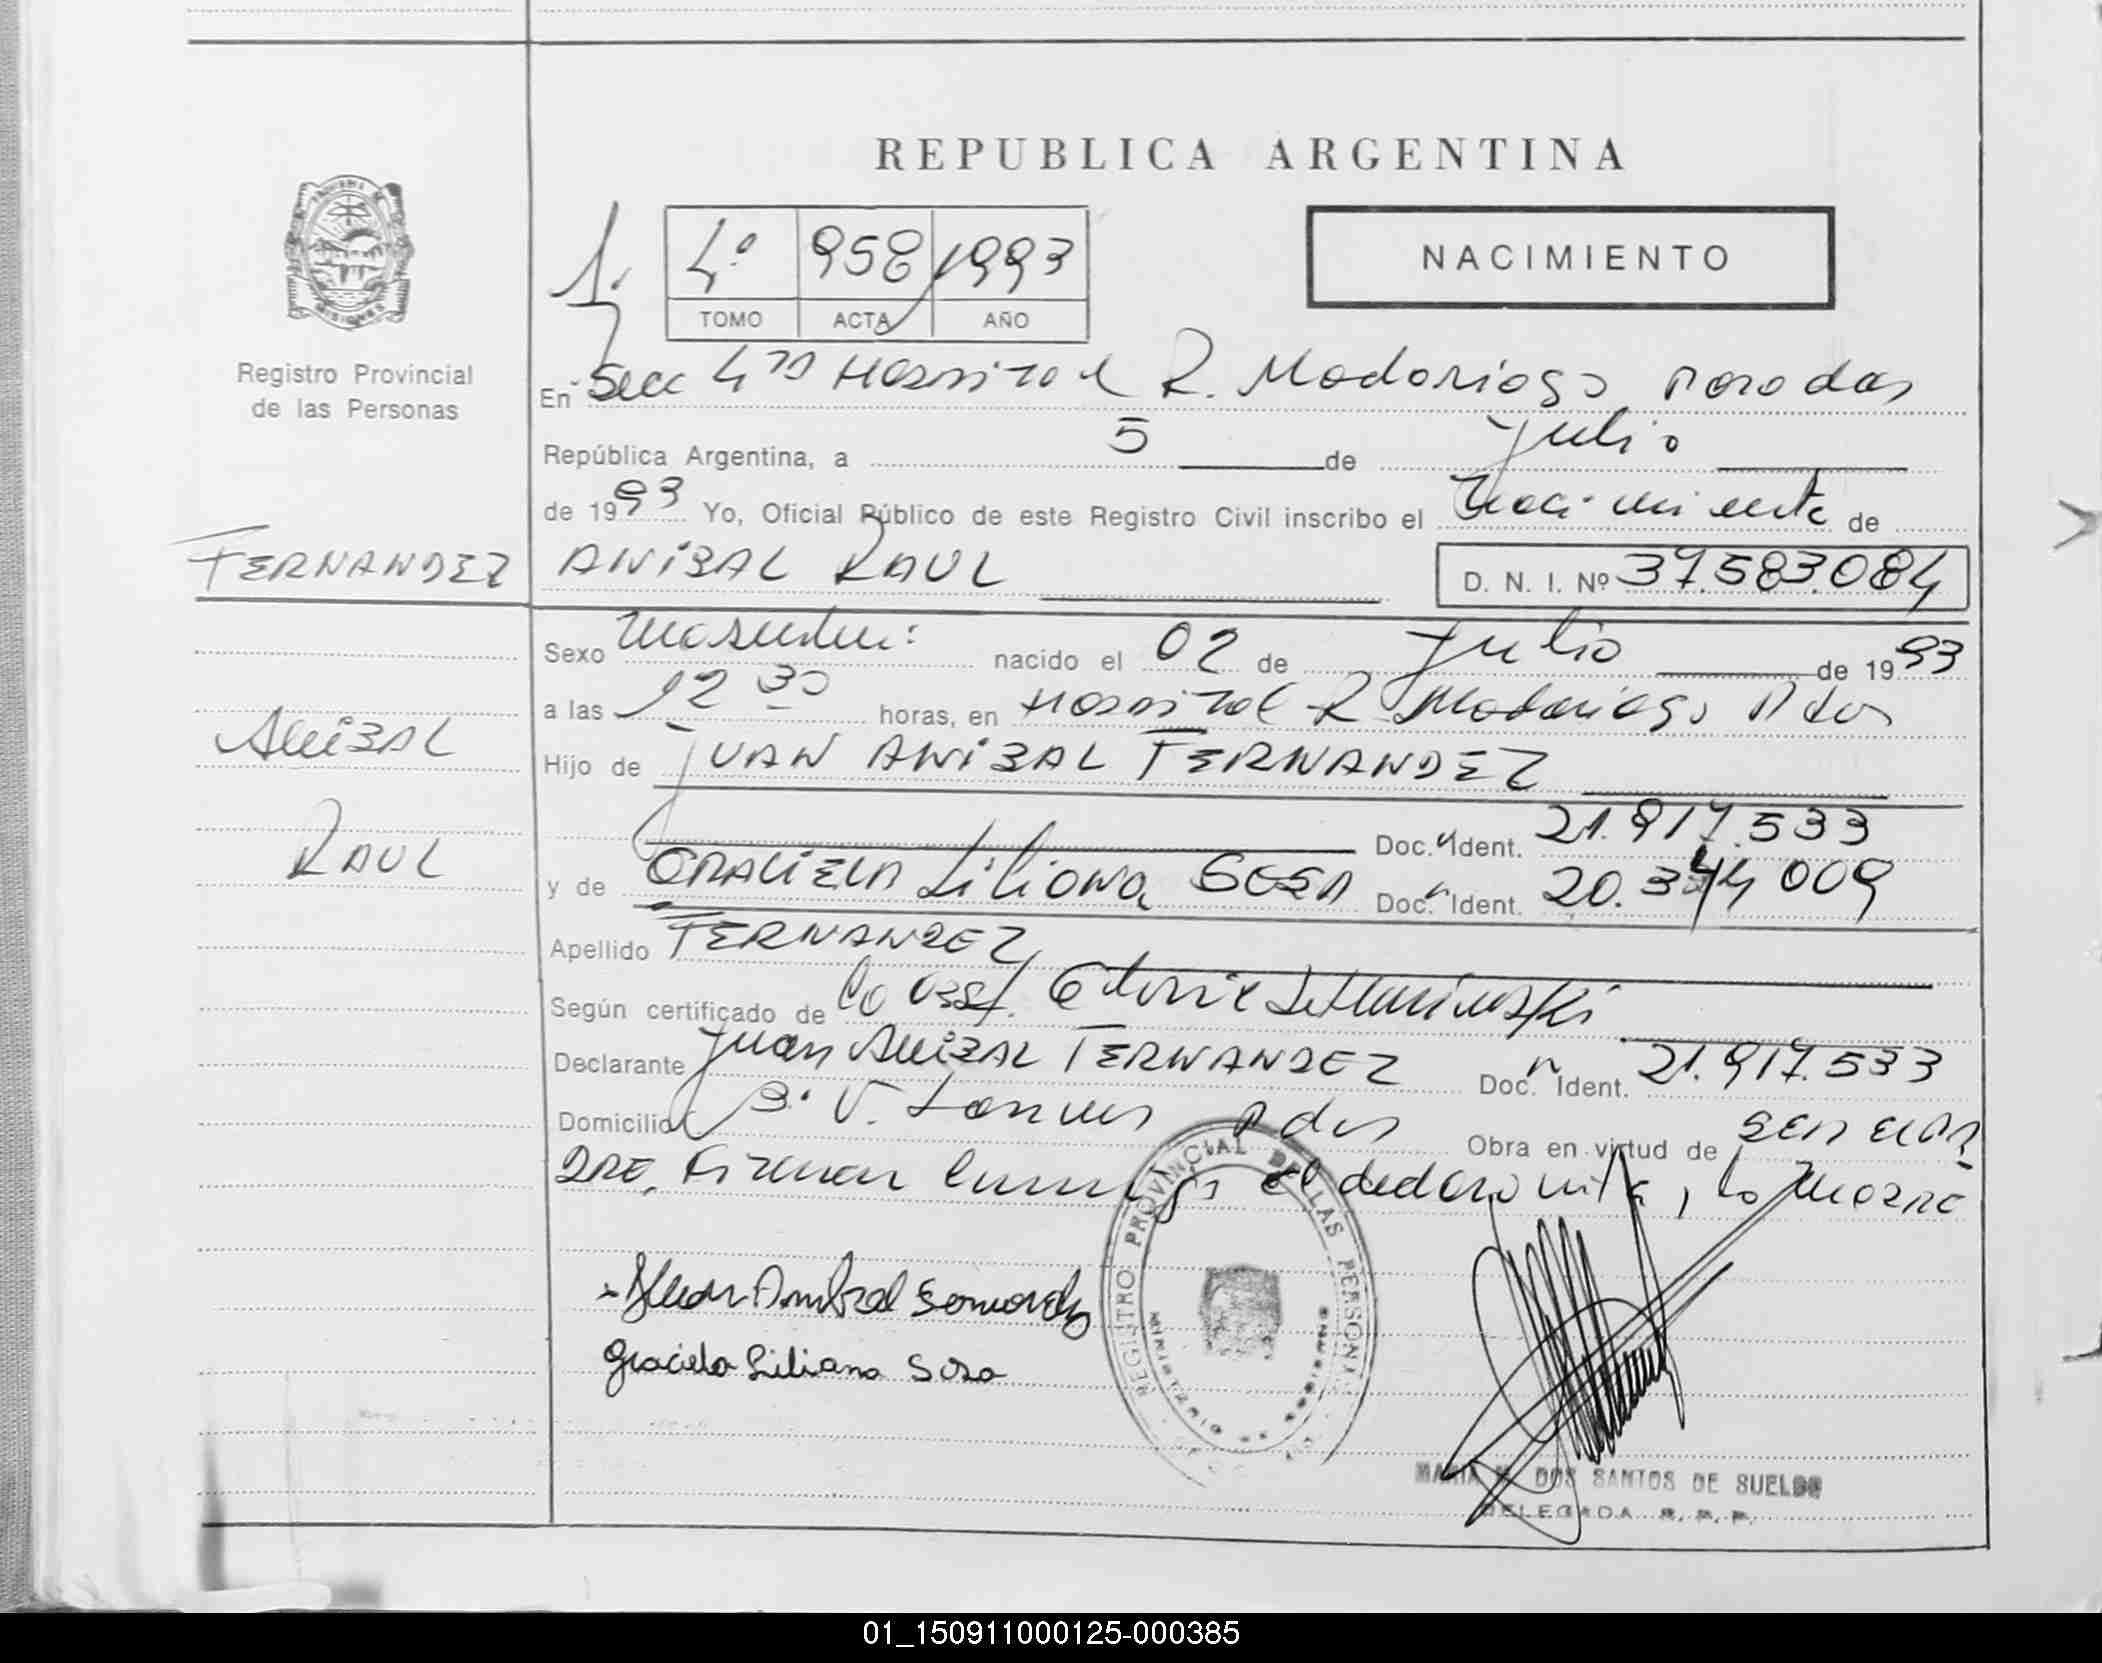 REPUBLICA ARGENTINA
NACIMIENTO
4º 958 1993
TOMO ACTA AÑO
Registro Provincial
de las Personas
En Secc 4ta Hospital R. Madariaga Posadas
República Argentina, a 5 de Julio
de 1993 Yo, Oficial Público de este Registro Civil inscribo el nacimiento de
FERNANDEZ ANIBAL RAUL D. N. I. Nº 37.583.084
Sexo Masculino nacido el 02 de Julio de 1993
a las 12 30 horas, en Hospital R. Madariaga Pdas
ANIBAL
RAUL
Hijo de JUAN ANIBAL FERNANDEZ
Doc. Ident. 21.917.533
y de GRACIELA Liliana SOSA Doc. Ident. 20.344 009
Apellido FERNANDEZ
Según certificado de la Obst.
Declarante Juan ANIBAL FERNANDEZ Doc. Ident. 21.917.533
Domicilio Bº V. Lanus Pdas Obra en virtud de
el declarante, la madre
Juan Anibal Fernandez
Graciela Liliana Sosa
REGISTRO PROVINCIAL DE LAS PERSONAS
MINISTERIO DE GOBIERNO
MARIA M. DOS SANTOS DE SUELDO
DELEGADA R. P. P.
01_150911000125-000385